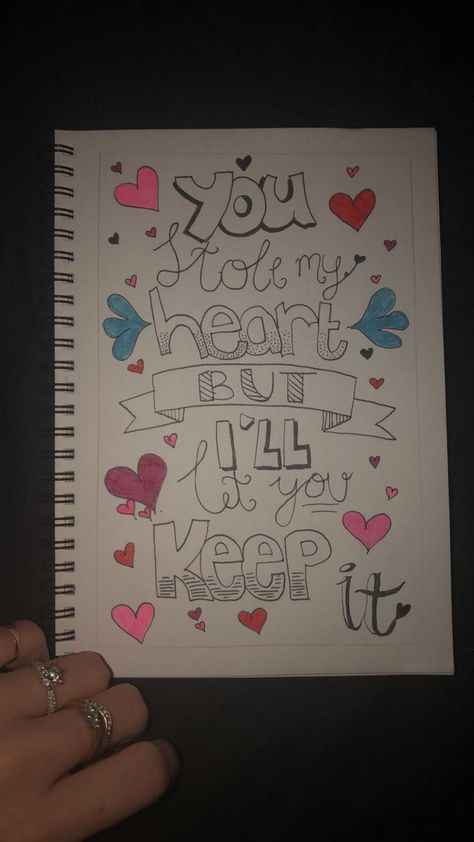 You
stole my
heart
BUT
I'LL
let you
KEEP
it